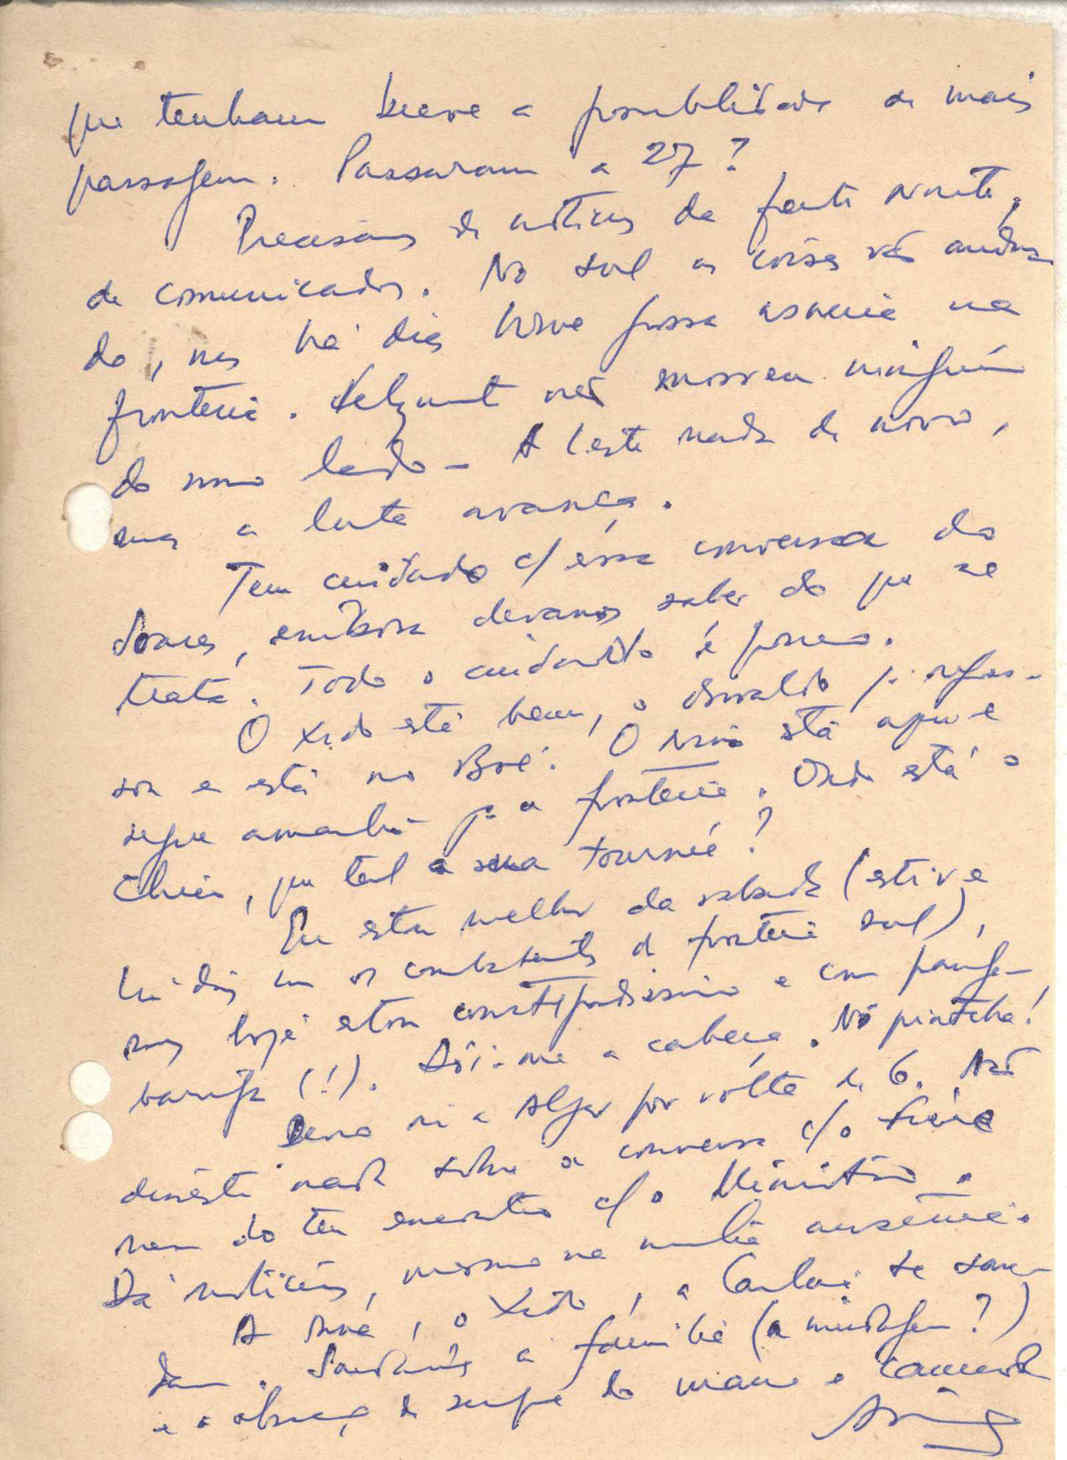 que tenham breve a possibilidade de mais
passagem. Passaram a 27?
Precisamos de notícias da frente Norte,
de comunicados. No sul as coisas vão andan-
do, mas há dias houve grossa na
fronteira. Felizmente não morreu ninguém
do nosso lado - A Leste nada de novo,
mas a luta avança.
Tem cuidado c/ essa conversa do
Soares, embora devamos saber do que se
trata. Todo o cuidado é pouco.
O Xido está bem, o Osvaldo já regres-
sou e está no Boé. O Nino está aqui e
segue amanhã pa a fronteira. Onde está o
, que tal a sua tournée?
Eu estou melhor da saúde (estive
há dias com os combatentes da fronteira sul),
mas hoje estou constipadíssimo e com
(!). Dói-me a cabeça. Nô pintcha!
Devo ir a Alger por volta de 6. Não
disseste nada sobre a conversa c/o
nem do teu encontro c/o Ministro.
Dá notícias, mesmo na minha ausência.
A , o Xido, a te saú-
dam. Saudações a família (a ?)
e o abraço de sempre do mano e camarada